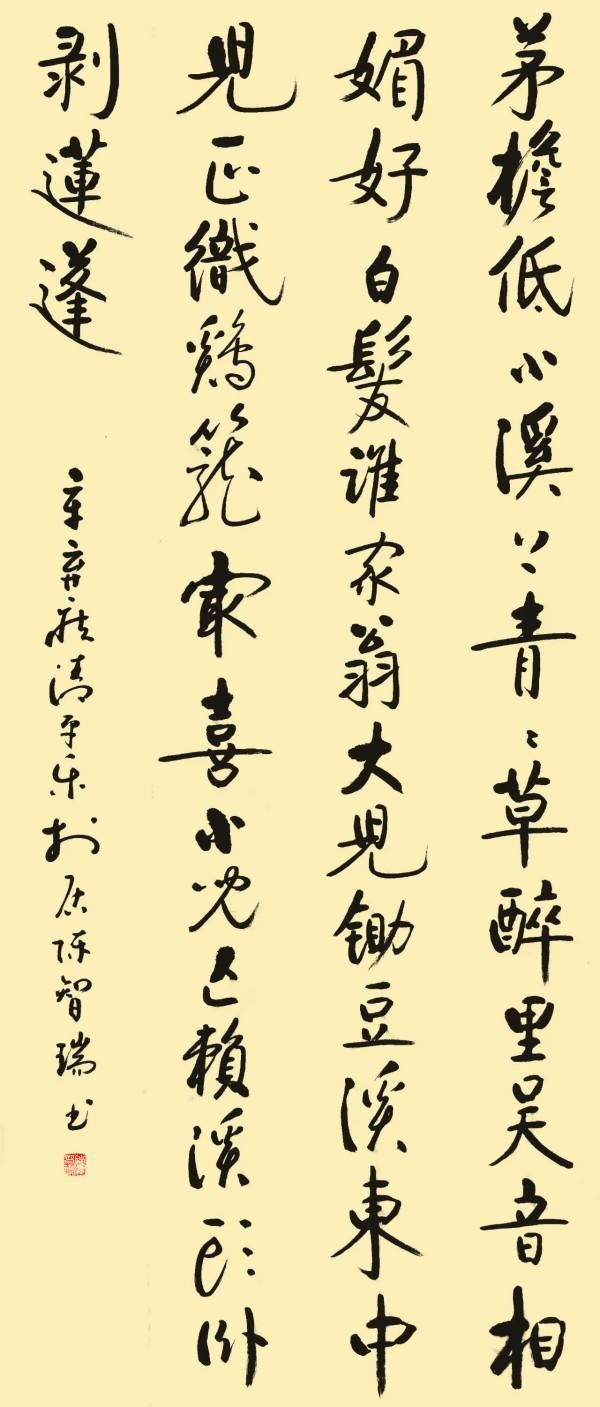 茅檐低小溪上青〻草醉里吴音相
媚好白髮誰家翁大兒锄豆溪東中
兒正織鷄籠最喜小兒亡賴溪頭卧
剥蓮蓬
辛弃疾清平乐村居陈智瑞书